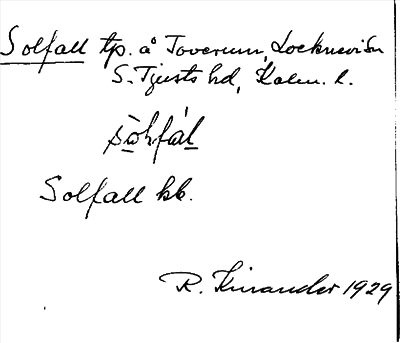 Solfall tp. å Toverum, Locknevi sn
S. Tjusts hd, Kalm. l.
Solfall kb.
R. Kinander 1929